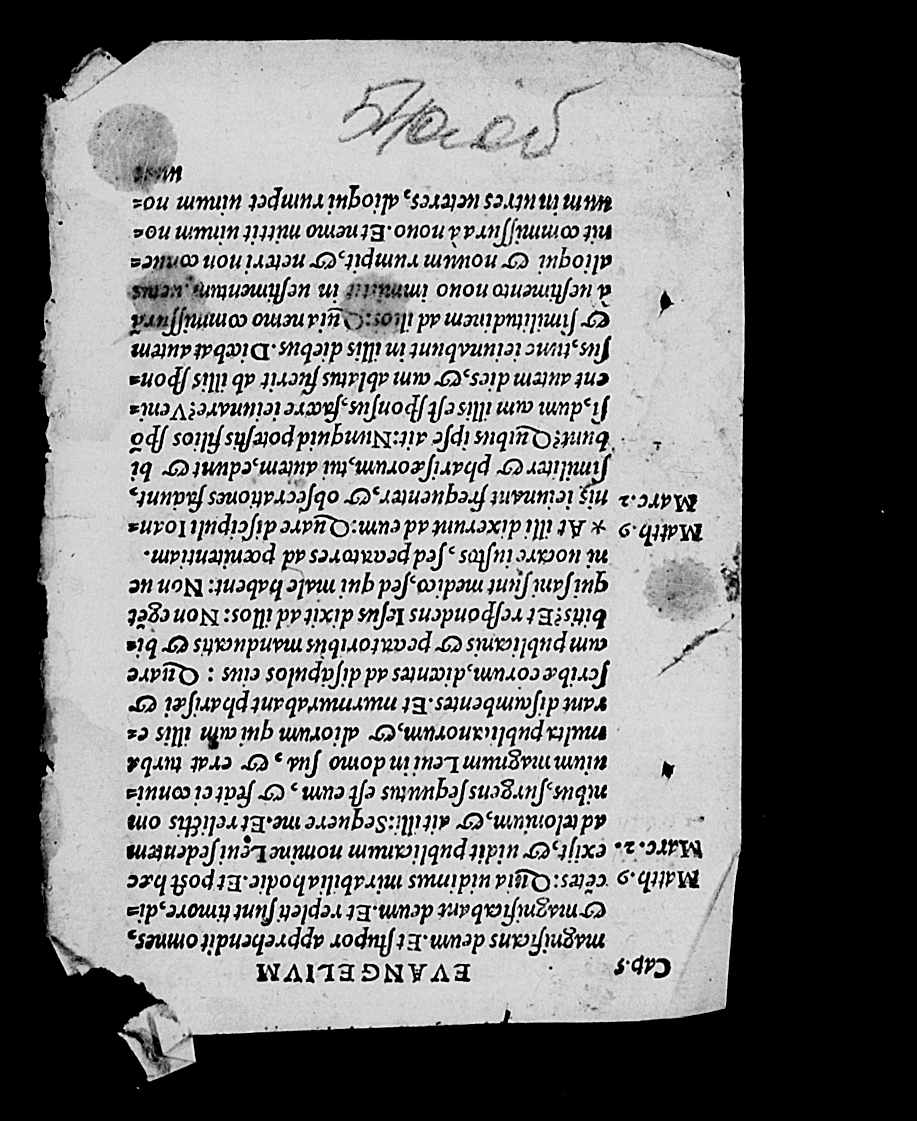 Cap.5 EVANGELIVM
magnificans deum. Et stupor apprehendit omnes,
& magnificabant deum. Et repleti sunt timore, di=
Matth.9 cētes: Quia uidimus mirabilia hodie. Et post hæc
Marc.2. exijt, & uidit publicanum nomine Leui sedentem
ad telonium, & ait illi: Sequere me. Et relictis om
nibus, surgens sequutus est eum, & fecit ei conui=
uium magnum Leui in domo sua, & erat turba
multa publicanorum, & aliorum qui cum illis e=
rant discumbentes. Et murmurabant pharisæi &
scribæ eorum, dicentes ad discipulos eius: Quare
cum publicanis & peccatoribus manducatis & bi=
bitis? Et respondens Iesus dixit ad illos: Non egēt
qui sani sunt medico, sed qui male habent: Non ue
ni uocare iustos, sed peccatores ad pœnitentiam.
Matth.9 * At illi dixerunt ad eum: Quare discipuli Ioan=
Marc.2. nis ieiunant frequenter, & obsecrationes faciunt,
similiter & pharisæorum, tui autem, edunt & bi
bunt? Quibus ipse ait: Nunquid potestis filios spō
si, dum cum illis est sponsus, facere ieiunare? Veni=
ent autem dies, & cum ablatus fuerit ab illis spon=
sus, tunc ieiunabunt in illis diebus. Dicebat autem
& similitudinem ad illos: Quia nemo commissurā
à uestimento nouo immittit in uestimentum uetus
alioqui & nouum rumpit, & ueteri non conue=
nit commissura à nouo. Et nemo mittit uinum no=
uum in utres ueteres, alioqui rumpet uinum no=
uum